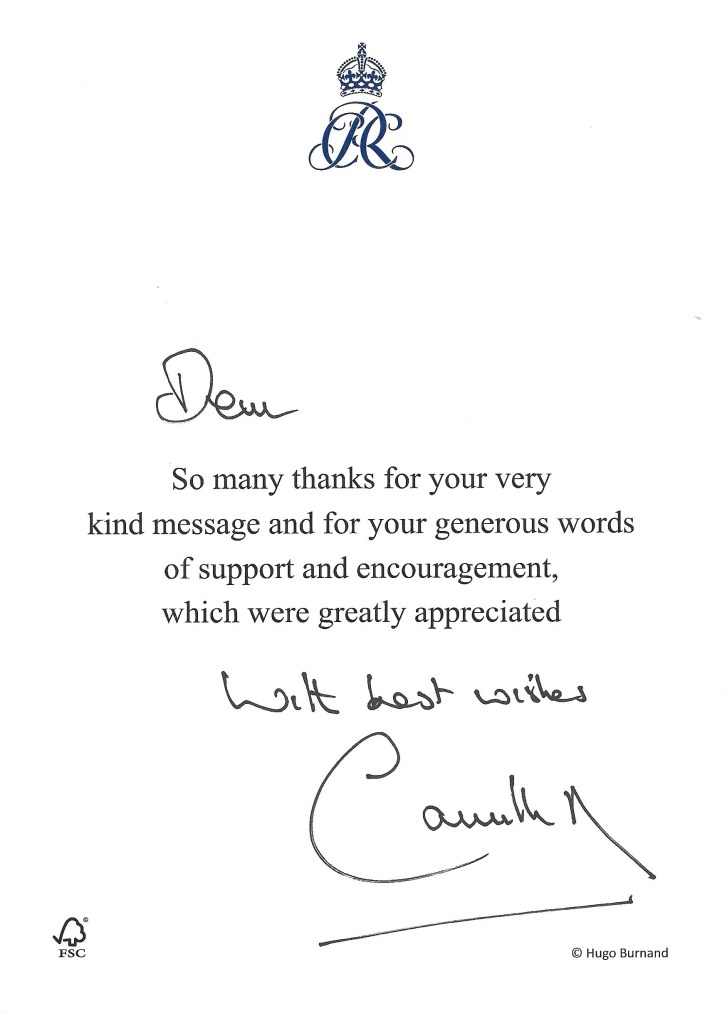 CR
Dear
So many thanks for your very
kind message and for your generous words
of support and encouragement,
which were greatly appreciated
With best wishes
Camilla R
FSC®
© Hugo Burnand